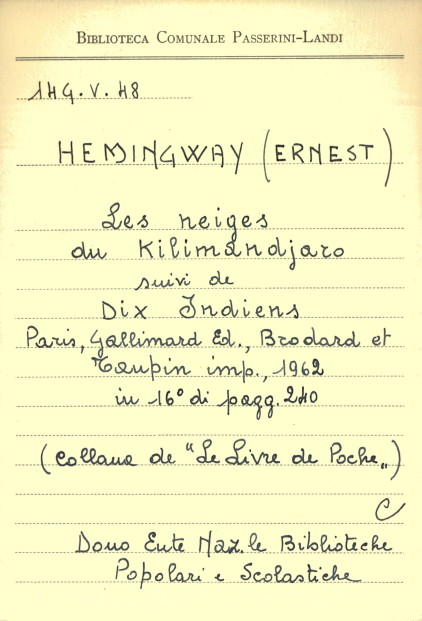 BIBLIOTECA COMUNALE PASSERINI-LANDI
14G.V.48
HEMINGWAY (ERNEST)
Les neiges
du Kilimandjaro
suivi de
Dix Indiens
Paris, Gallimard Ed., Brodard et
Taupin imp., 1962
in 16° di pagg. 240
(collana de "Le Livre de Poche„)
C
Dono Ente Naz.le Biblioteche
Popolari e Scolastiche